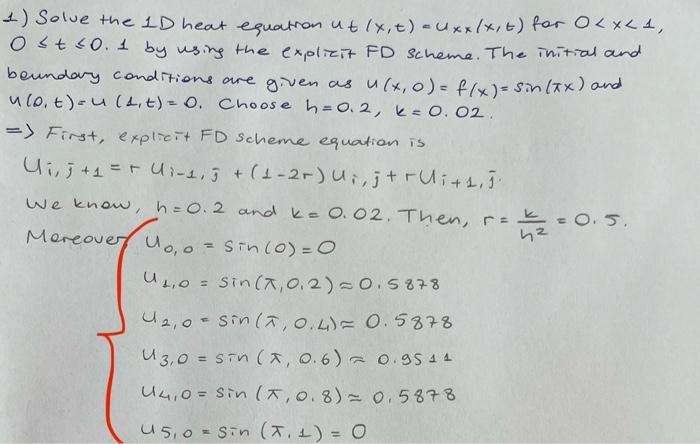 1) Solve the 1D heat equation ut(x,t) = uxx(x,t) for 0<x<1,
0≤t≤0.1 by using the explicit FD scheme. The initial and
boundary conditions are given as u(x,0) = f(x) = sin(πx) and
u(0,t) = u(1,t) = 0. Choose h=0.2, k=0.02.
=> First, explicit FD scheme equation is
Ui,j+1 = r Ui-1,j + (1-2r) Ui,j + r Ui+1,j.
We know, h=0.2 and k=0.02. Then, r = k/h² = 0.5.
Moreover, u0,0 = sin(0) = 0
u1,0 = sin(π.0.2) ≈ 0.5878
u2,0 = sin(π.0.4) ≈ 0.5878
u3,0 = sin(π.0.6) ≈ 0.9511
u4,0 = sin(π.0.8) ≈ 0.5878
u5,0 = sin(π.1) = 0